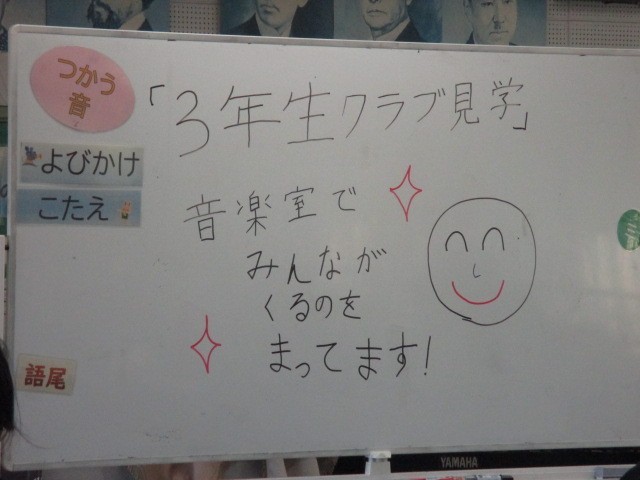 つかう
音
「3年生クラブ見学」
よびかけ
こたえ
音楽室で
みんなが
くるのを
まってます!
語尾
YAMAHA